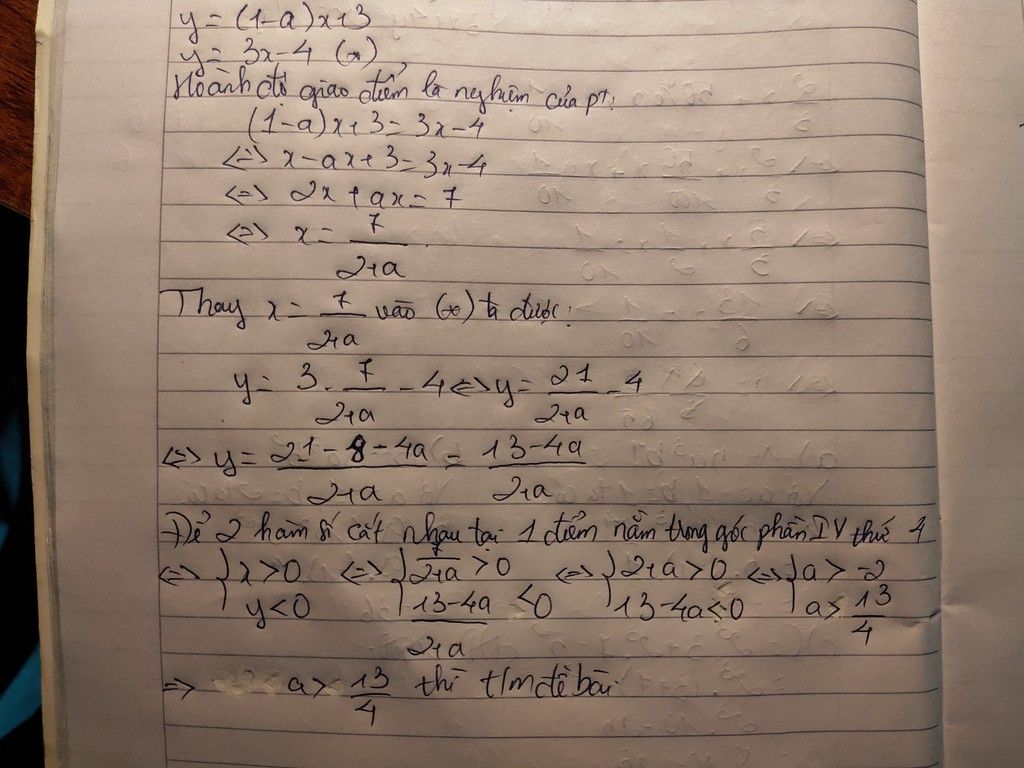 y = (1-a)x+3
y = 3x-4 (*)
Hoành độ giao điểm là nghiệm của pt:
(1-a)x+3 = 3x-4
<=> x-ax+3 = 3x-4
<=> 2x+ax = 7
<=> x = 7/(2+a)
Thay x = 7/(2+a) vào (*) ta được:
y = 3 . 7/(2+a) - 4 <=> y = 21/(2+a) - 4
<=> y = (21-8-4a)/(2+a) = (13-4a)/(2+a)
Để 2 hàm số cắt nhau tại 1 điểm nằm trong góc phần IV thứ 4
<=> { x>0 <=> { 7/(2+a) >0 <=> { 2+a>0 <=> { a>-2
y<0 (13-4a)/(2+a) <0 13-4a<0 a> 13/4
=> a> 13/4 thì t/m đề bài